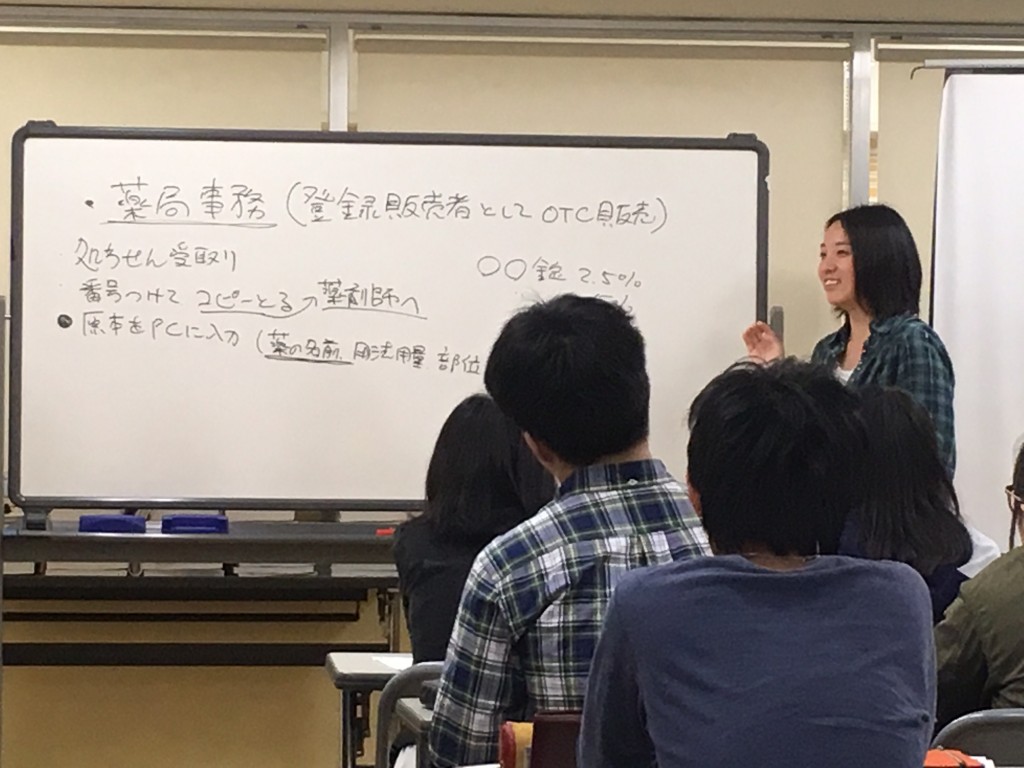 ・薬局事務(登録販売者としてOTC販売)
処方せん受取り
番号つけて コピーとる→薬剤師へ
●原本をPCに入力(薬の名前、用法用量 部位
○○錠 2.5%
5%